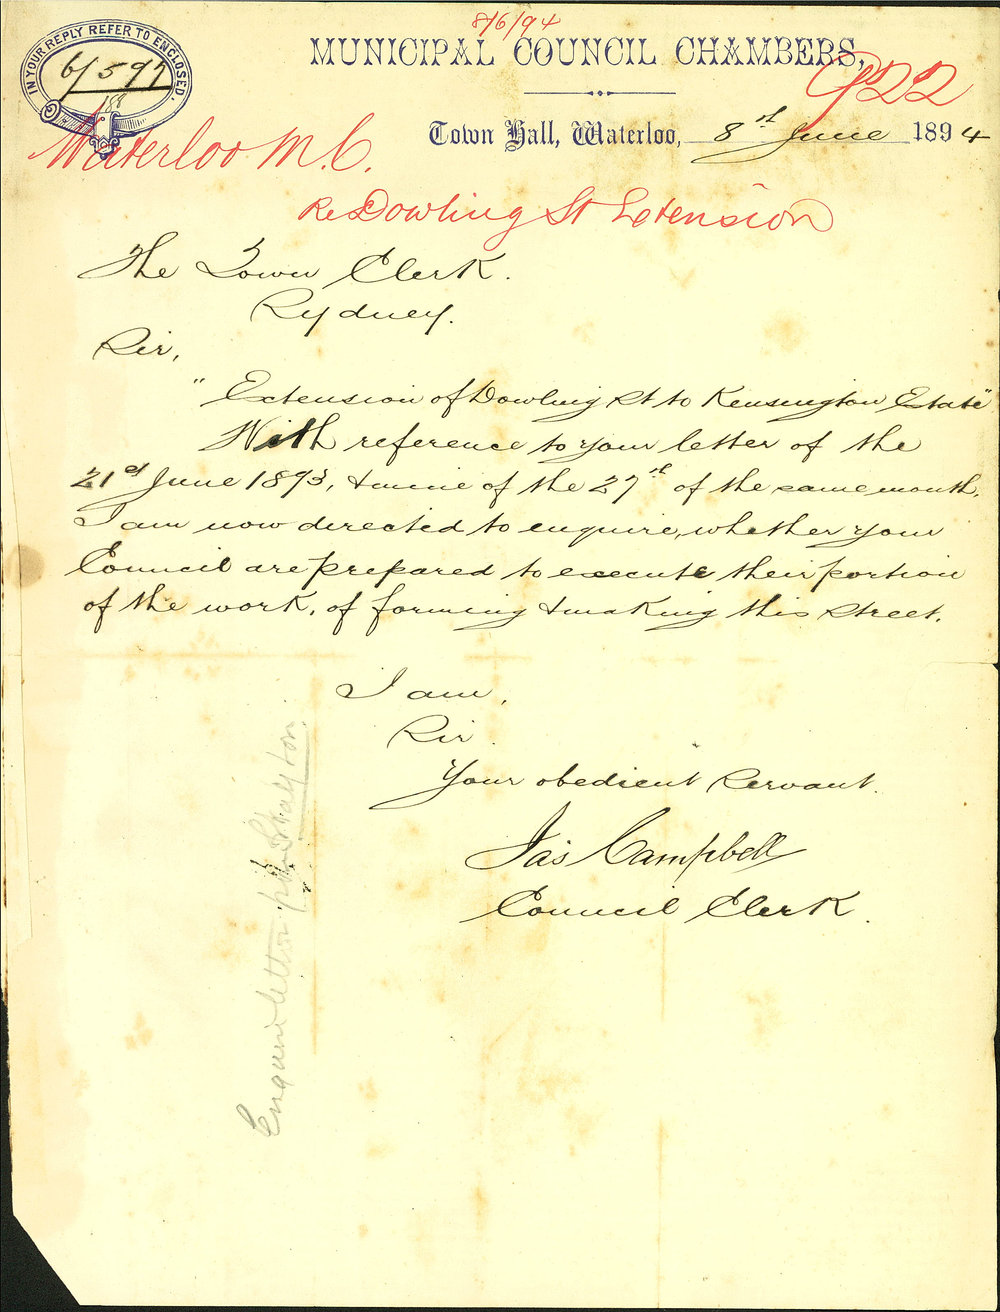 8/6/94
MUNICIPAL COUNCIL CHAMBERS,
IN YOUR REPLY REFER TO ENCLOSED.
6/597
188
922
Town Hall, Waterloo, 8th June 1894
Waterloo M.C.
Re Dowling St Extension
The Town Clerk.
Sydney.
Sir,
"Extension of Dowling St to Kensington Estate"
With reference to your letter of the
21st June 1893, & mine of the 27th of the same month,
I am now directed to enquire, whether your
Council are prepared to execute their portion
of the work, of forming & making this street.
I am,
Sir
Your obedient Servant.
Jas Campbell
Council Clerk.
letter